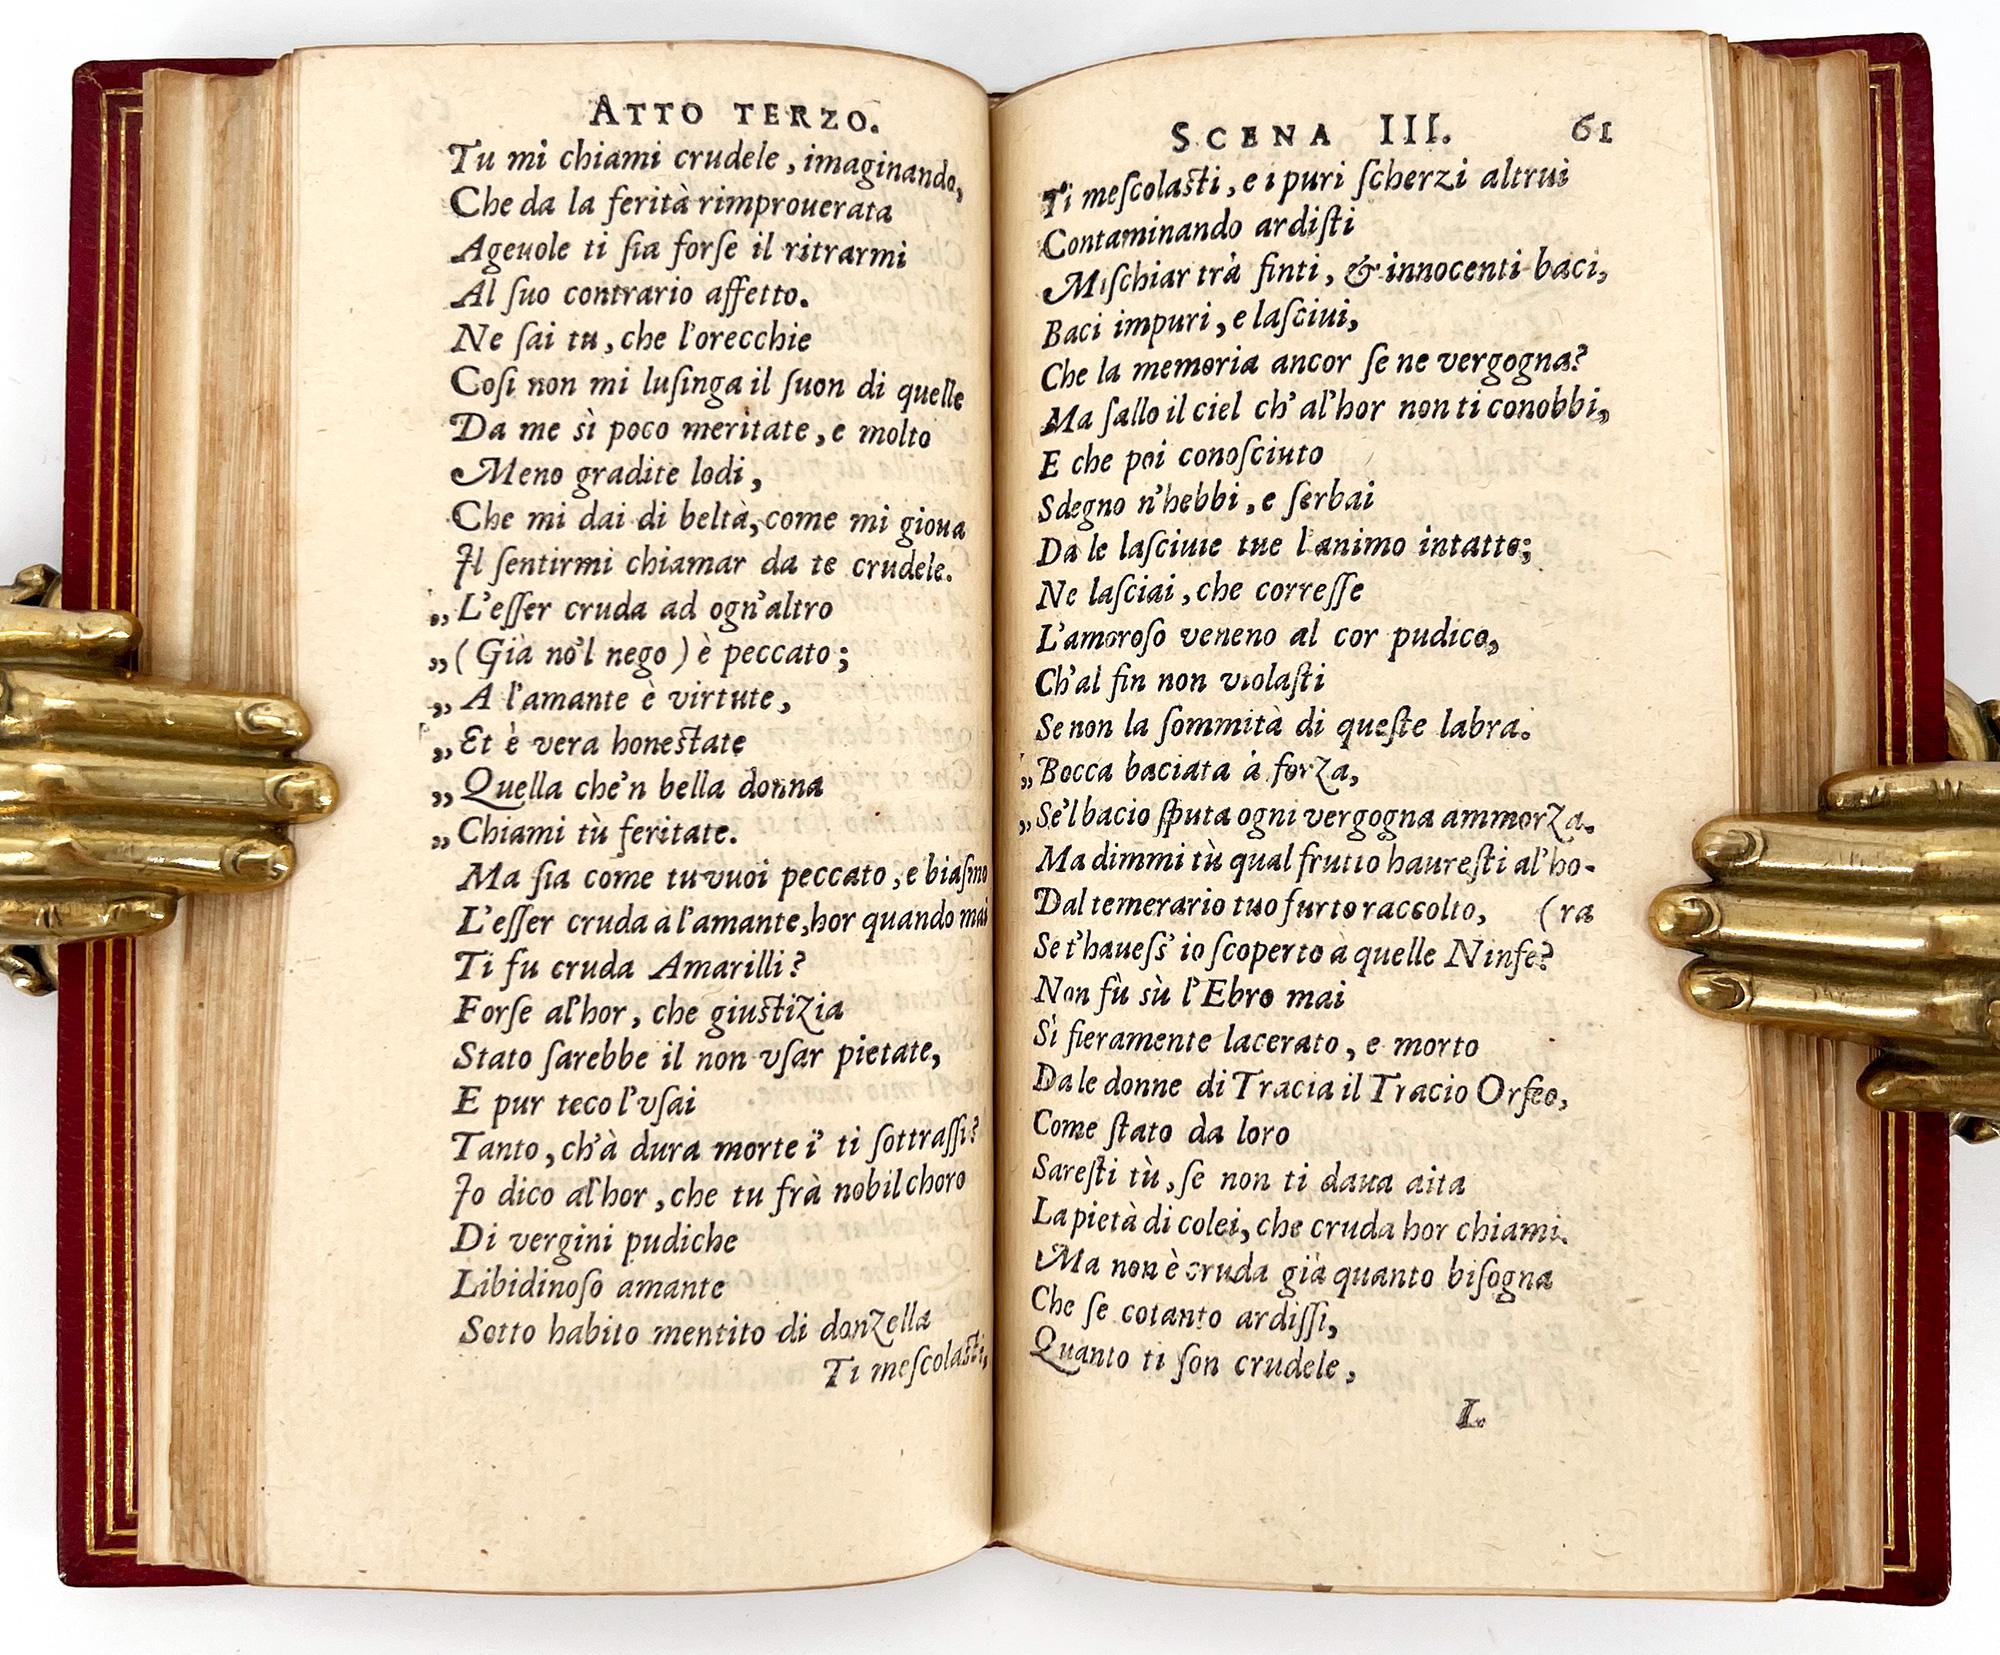 ATTO TERZO.
Tu mi chiami crudele, imaginando,
Che da la ferità rimprouerata
Ageuole ti ſia forſe il ritrarmi
Al ſuo contrario affetto.
Ne ſai tu, che l'orecchie
Coſi non mi luſinga il ſuon di quelle
Da me sì poco meritate, e molto
Meno gradite lodi,
Che mi dai di beltà, come mi gioua
Il ſentirmi chiamar da te crudele.
„ L'eſſer cruda ad ogn'altro
„ (Già no'l nego) è peccato;
„ A l'amante è virtute,
„ Et è vera honeſtate
„ Quella che'n bella donna
„ Chiami tù feritate.
Ma ſia come tu vuoi peccato, e biaſmo
L'eſſer cruda à l'amante, hor quando mai
Ti fu cruda Amarilli?
Forſe al'hor, che giuſtizia
Stato ſarebbe il non vſar pietate,
E pur teco l'vſai
Tanto, ch'à dura morte i' ti ſottraſſi?
Io dico al'hor, che tu frà nobil choro
Di vergini pudiche
Libidinoſo amante
Sotto habito mentito di donzella
Ti meſcolaſti,
SCENA III. 61
Ti meſcolaſti, e i puri ſcherzi altrui
Contaminando ardiſti
Miſchiar trà finti, & innocenti baci,
Baci impuri, e laſciui,
Che la memoria ancor ſe ne vergogna?
Ma ſallo il ciel ch'al'hor non ti conobbi,
E che poi conoſciuto
Sdegno n'hebbi, e ſerbai
Da le laſciuie tue l'animo intatto;
Ne laſciai, che correſſe
L'amoroſo veneno al cor pudico,
Ch'al fin non violaſti
Se non la ſommità di queſte labra.
„ Bocca baciata à forza,
„ Se'l bacio ſputa ogni vergogna ammorza.
Ma dimmi tù qual frutto haureſti al'ho-
Dal temerario tuo furto raccolto, (ra
Se t'haueſſ' io ſcoperto à quelle Ninfe?
Non fù sù l'Ebro mai
Sì fieramente lacerato, e morto
Da le donne di Tracia il Tracio Orfeo,
Come ſtato da loro
Sareſti tù, ſe non ti daua aita
La pietà di colei, che cruda hor chiami.
Ma non è cruda già quanto biſogna
Che ſe cotanto ardiſſi,
Quanto ti ſon crudele,
L